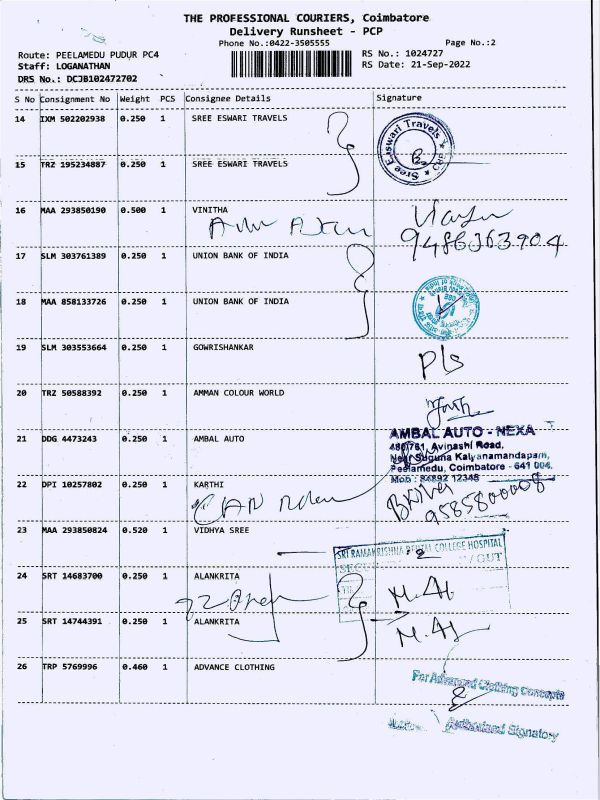 THE PROFESSIONAL COURIERS, Coimbatore
Delivery Runsheet - PCP
Phone No.:0422-3505555
Page No.:2
Route: PEELAMEDU PUDUR PC4
RS No.: 1024727
Staff: LOGANATHAN
RS Date: 21-Sep-2022
DRS No.: DCJB102472702
S No Consignment No Weight PCS Consignee Details Signature
14 IXM 502202938 0.250 1 SREE ESWARI TRAVELS
Sree Eswari Travels
15 TRZ 195234887 0.250 1 SREE ESWARI TRAVELS
16 MAA 293850190 0.500 1 VINITHA
17 SLM 303761389 0.250 1 UNION BANK OF INDIA
18 MAA 858133726 0.250 1 UNION BANK OF INDIA
19 SLM 303553664 0.250 1 GOWRISHANKAR
20 TRZ 50588392 0.250 1 AMMAN COLOUR WORLD
21 DDG 4473243 0.250 1 AMBAL AUTO
AMBAL AUTO - NEXA
480/761, Avinashi Road,
Near Suguna Kalyanamandapam,
Peelamedu, Coimbatore - 641 004.
Mob : 84892 12348
22 DPI 10257802 0.250 1 KARTHI
9585800008
23 MAA 293850824 0.520 1 VIDHYA SREE
SRI RAMAKRISHNA DENTAL COLLEGE HOSPITAL
24 SRT 14683700 0.250 1 ALANKRITA
25 SRT 14744391 0.250 1 ALANKRITA
26 TRP 5769996 0.460 1 ADVANCE CLOTHING
For Advanced Clothing Concepts
Authorised Signatory